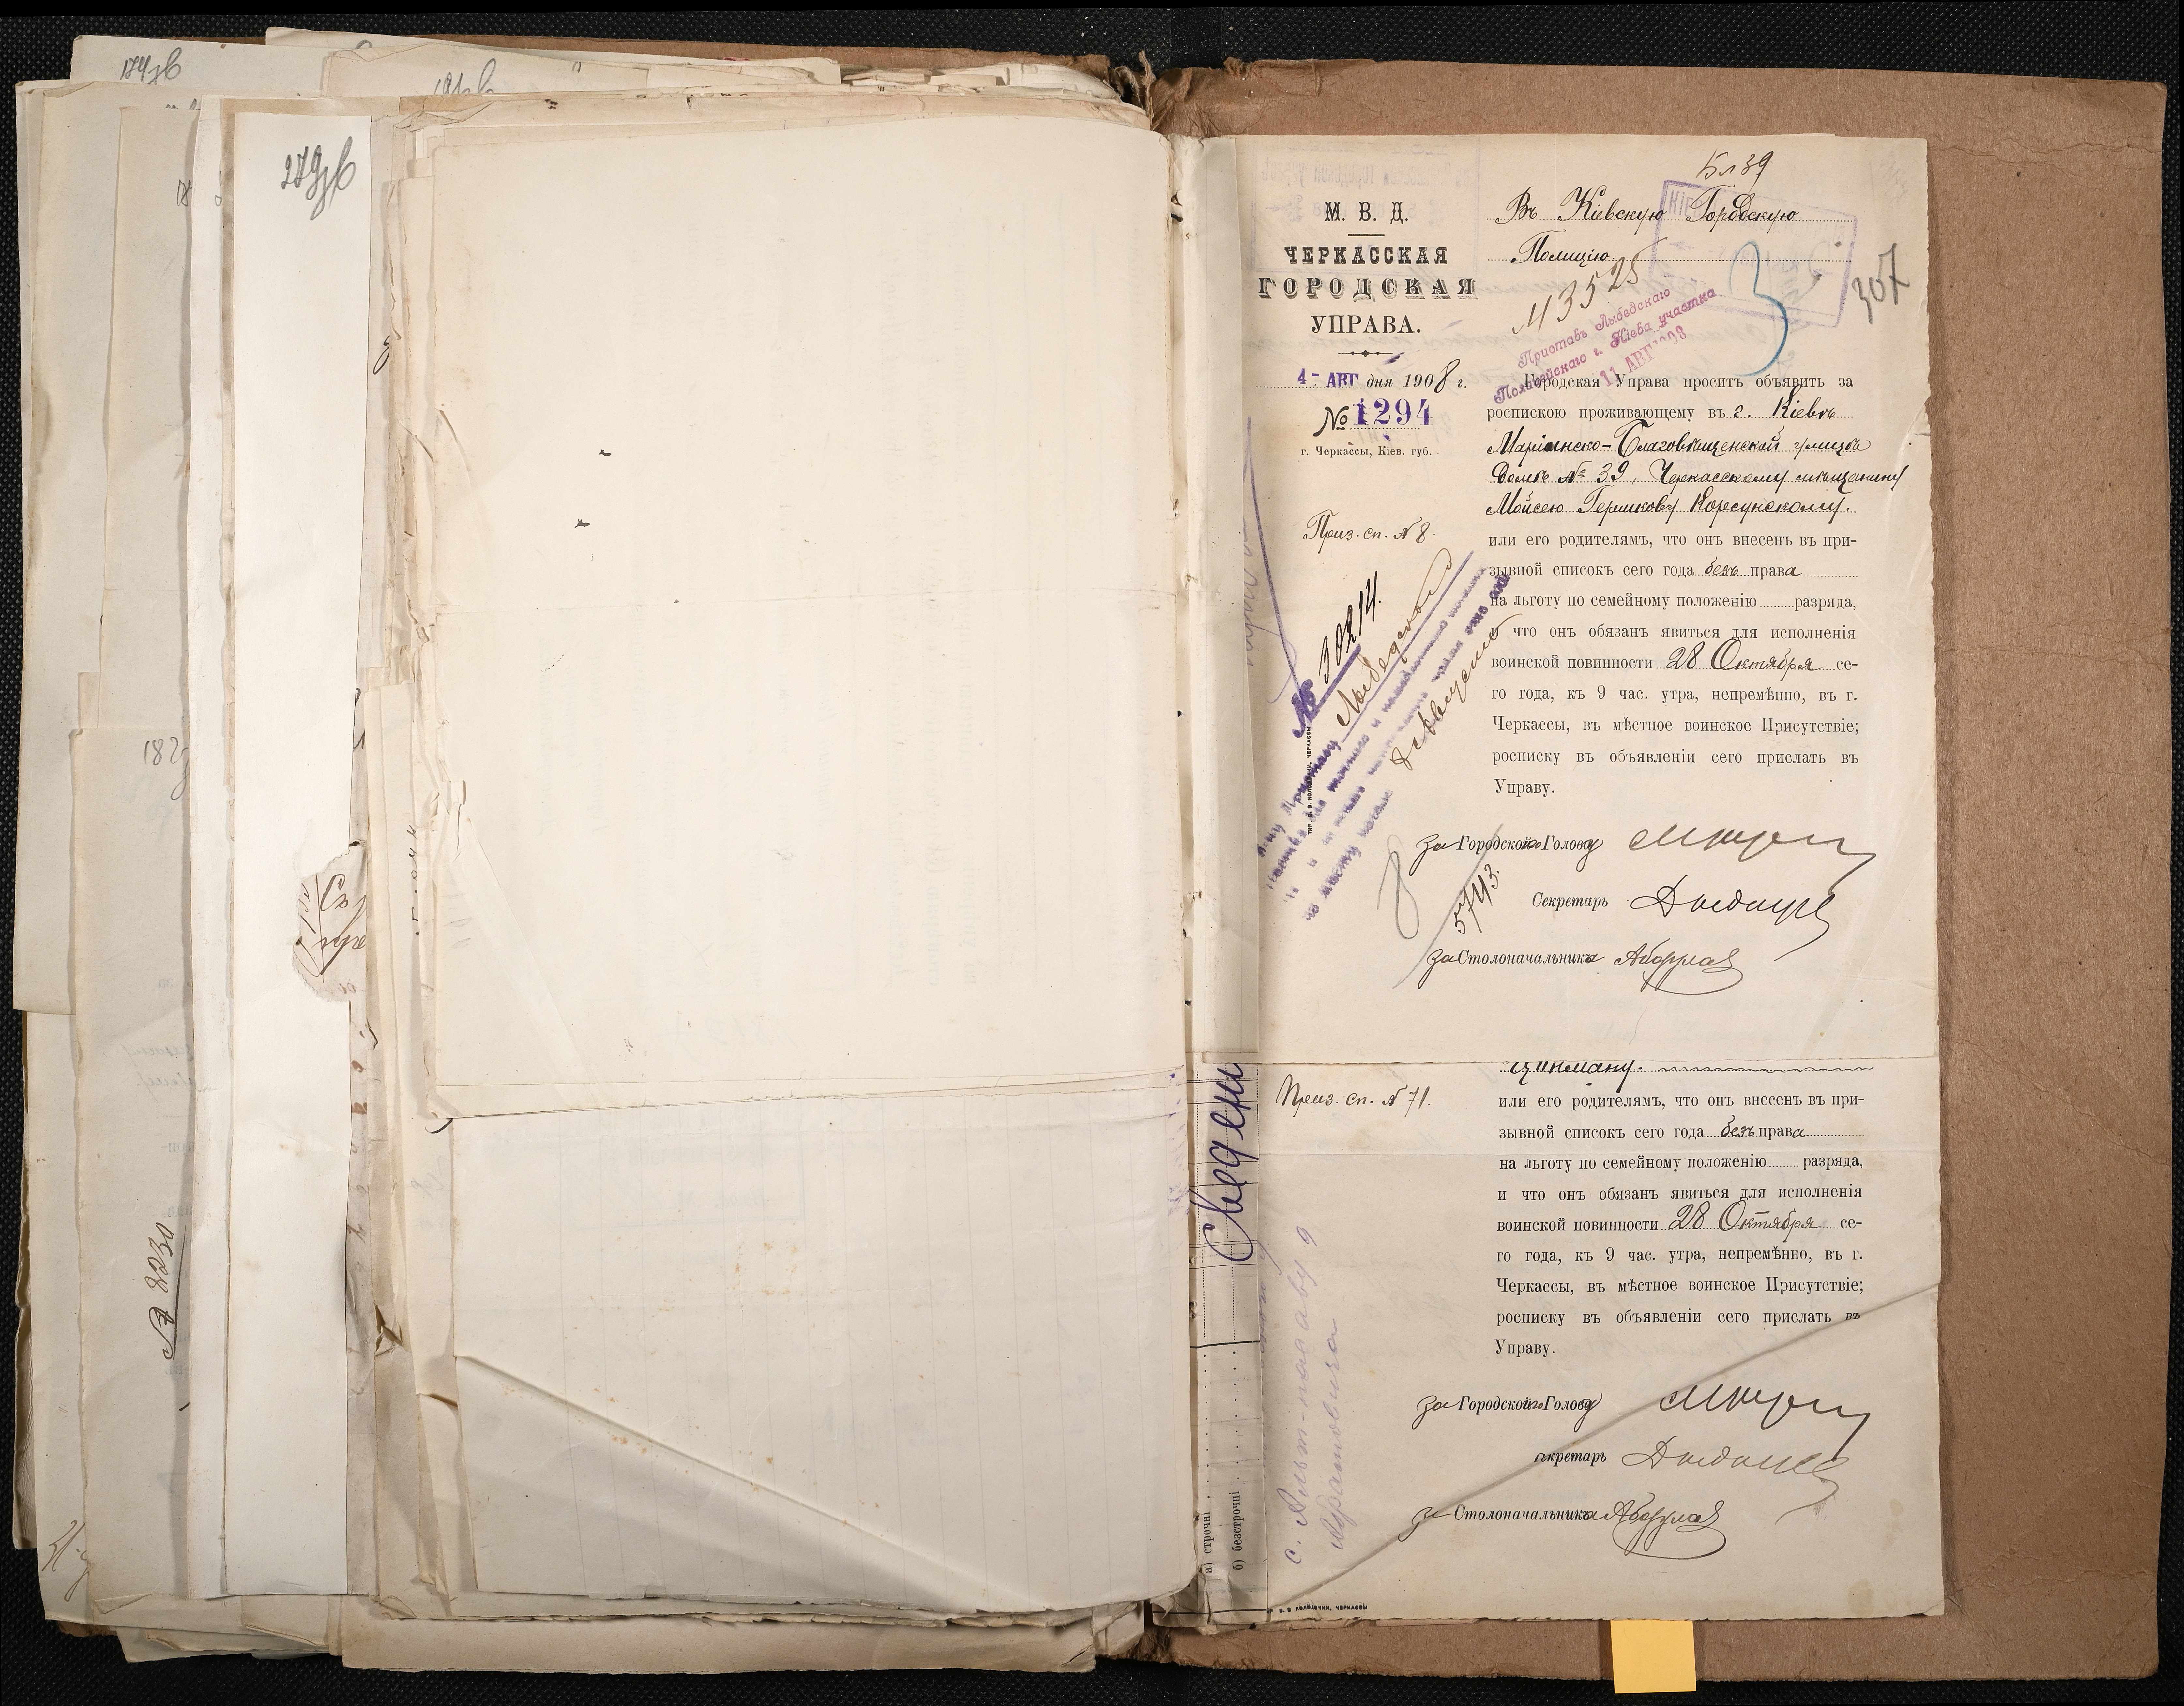 279об
Бл39
М. В. Д.
ЧЕРКАССКАЯ
ГОРОДСКАЯ
УПРАВА.
4 - АВГ дня 1908 г.
№ 1294
г. Черкассы, Кіев. губ.
Въ Кіевскую Городскую
Полицію
307
3
Приставъ Лыбедскаго
Полицейскаго г. Кіева участка
11 АВГ 1908
Городская Управа проситъ объявить за
роспискою проживающему въ г. Кіевѣ
Маріинско-Благовѣщенской улицѣ
домъ № 39, Черкасскому мѣщанину
Мойсею Гершкову Корсунскому.
Приз. сп. № 8
или его родителямъ, что онъ внесенъ въ при-
зывной списокъ сего года безъ права
на льготу по семейному положенію разряда,
и что онъ обязанъ явиться для исполненія
воинской повинности 28 Октября се-
го года, къ 9 час. утра, непремѣнно, въ г.
Черкассы, въ мѣстное воинское Присутствіе;
росписку въ объявленіи сего прислать въ
Управу.
№ 30214.
Приставу Лыбедской
за Городского Голову
Секретарь
за Столоначальника
5743.
8
Приз. сп. № 71.
или его родителямъ, что онъ внесенъ въ при-
зывной списокъ сего года безъ права
на льготу по семейному положенію разряда,
и что онъ обязанъ явиться для исполненія
воинской повинности 28 Октября се-
го года, къ 9 час. утра, непремѣнно, въ г.
Черкассы, въ мѣстное воинское Присутствіе;
росписку въ объявленіи сего прислать въ
Управу.
за Городского Голову
кретарь
за Столоначальника
Сведени
а) строчні
б) безстрочні
№ 2230